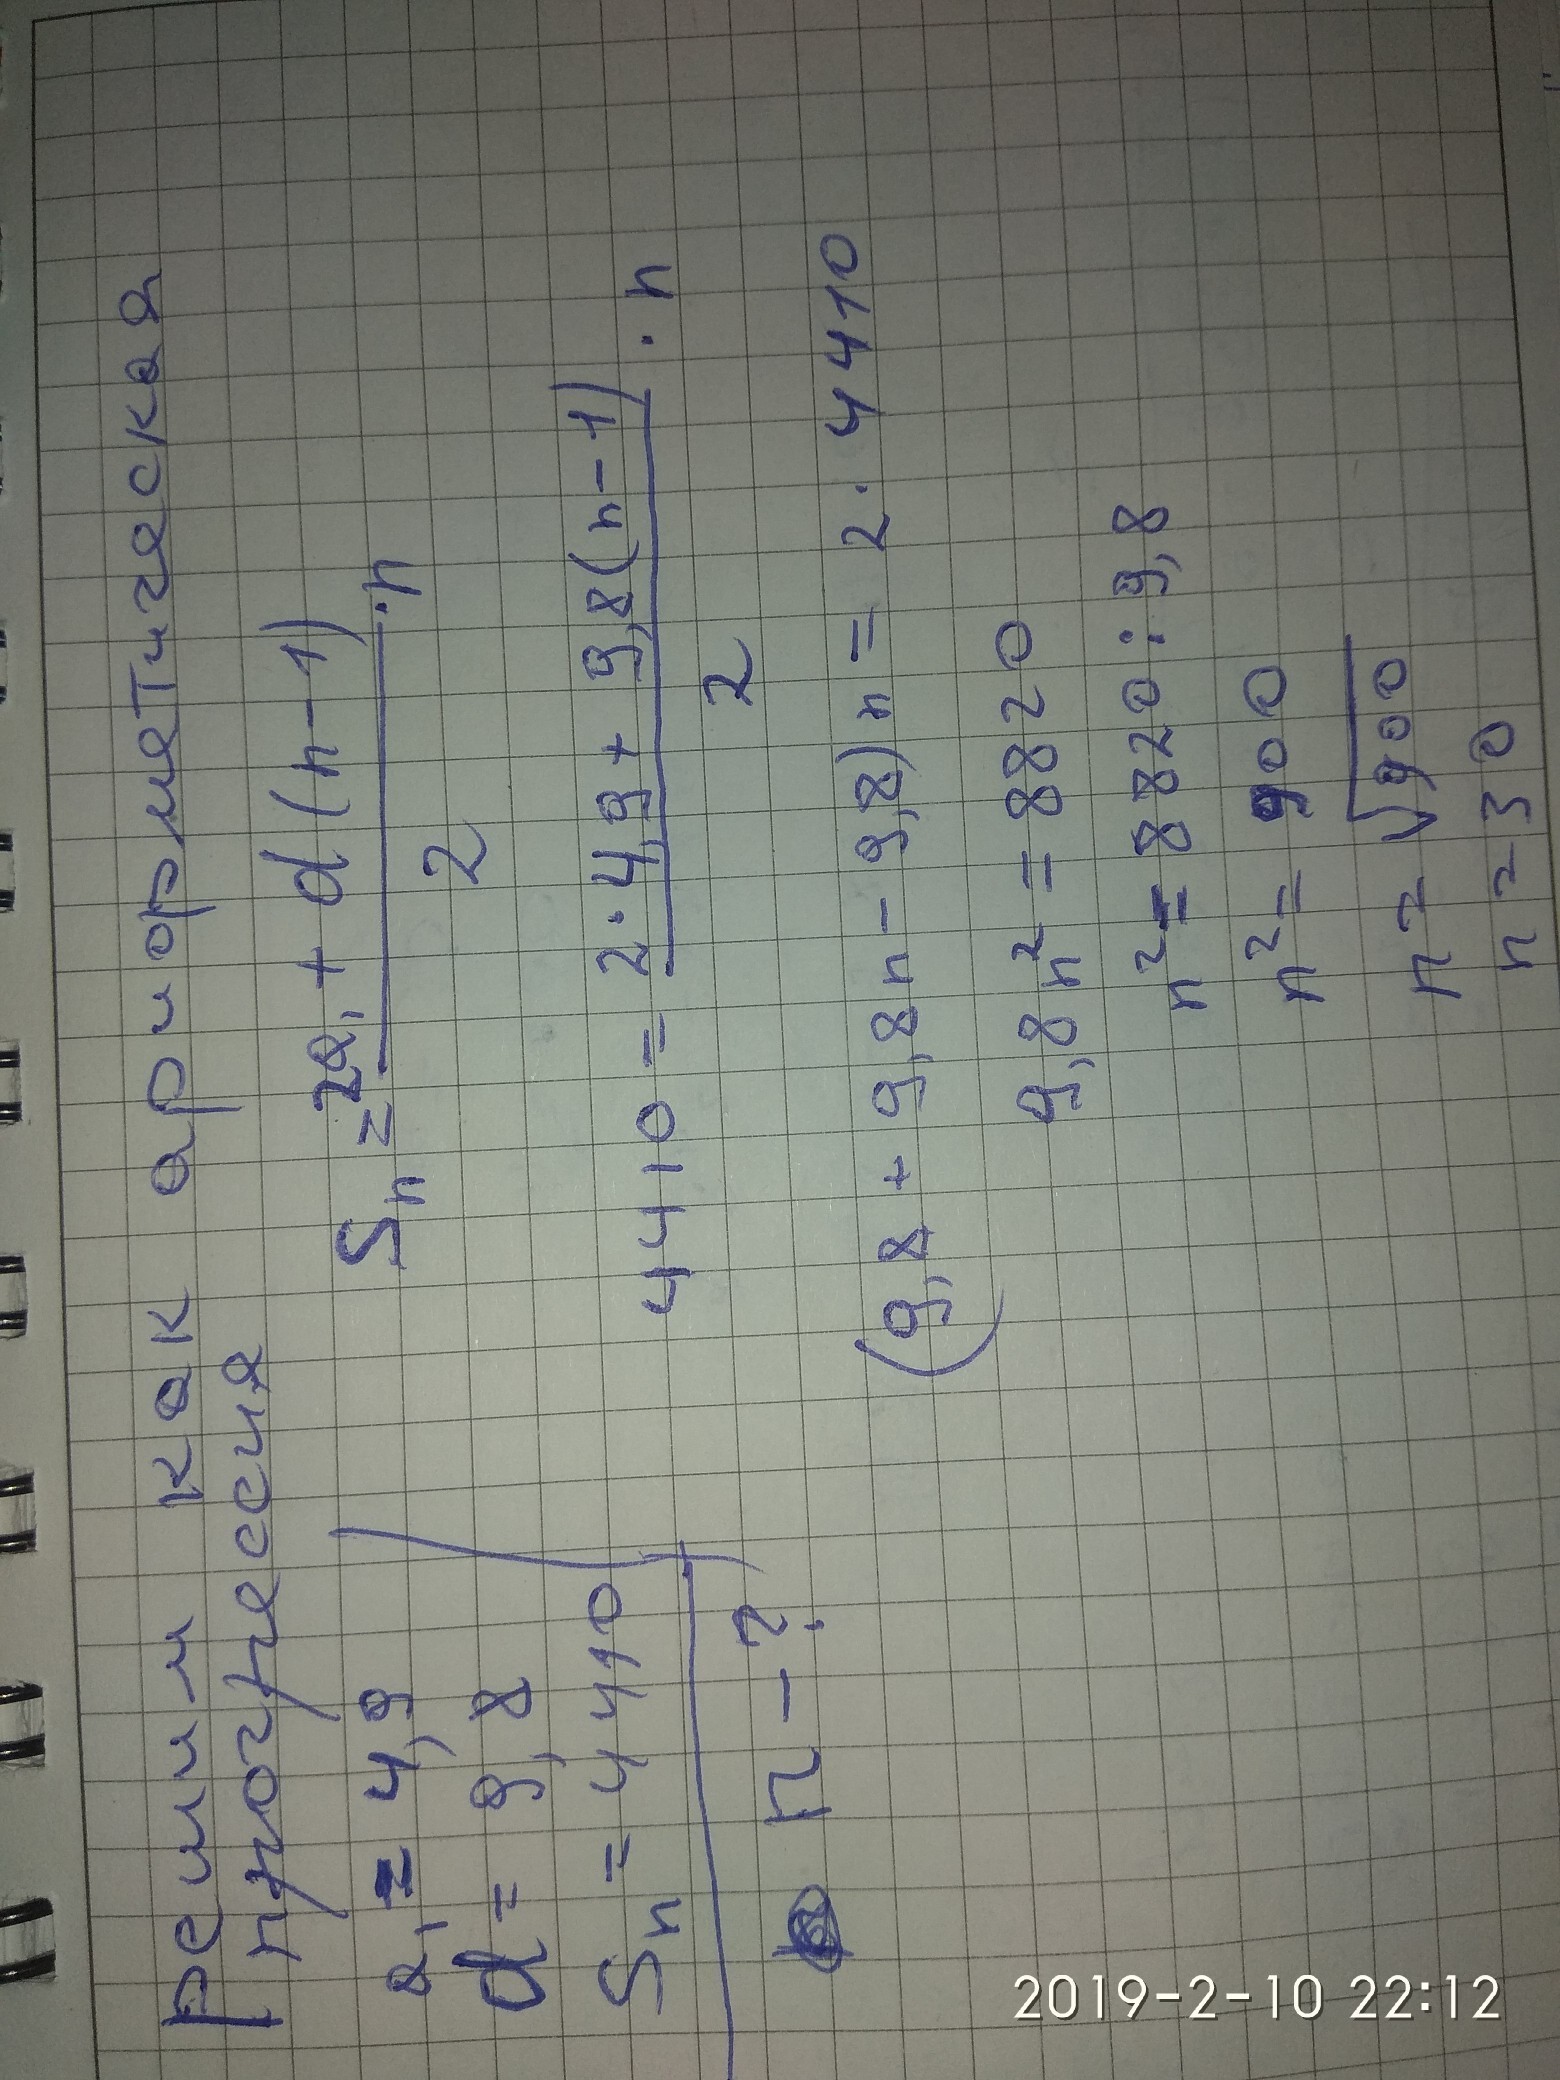 решим как арифметическая
прогрессия
a₁ = 4,9
d = 9,8
Sₙ = 4410
n - ?
Sₙ = 2a₁ + d(n-1) / 2 · n
4410 = 2·4,9 + 9,8(n-1) / 2 · n
(9,8 + 9,8n - 9,8)n = 2·4410
9,8n² = 8820
n² = 8820 : 9,8
n² = 900
n = √900
n = 30
2019-2-10 22:12